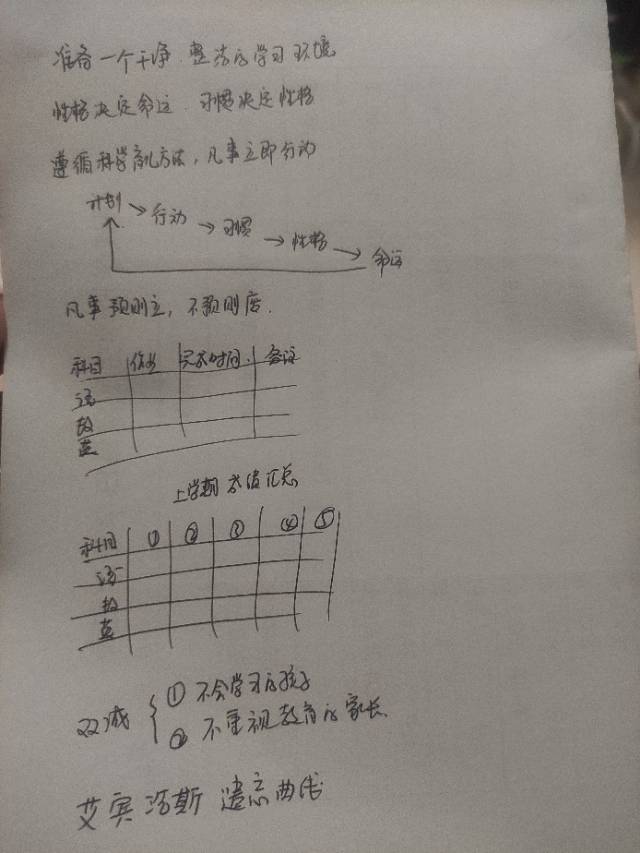 准备一个干净.整洁的学习环境
性格决定命运.习惯决定性格
遵循科学育儿方法,凡事立即行动
计划→行动→习惯→性格→命运
凡事预则立,不预则废.
科目 作业 完成时间. 备注
语
数
英
上学期 成绩汇总
科目 ① ② ③ ④ ⑤
语
数
英
双减 { ① 不会学习的孩子
② 不重视教育的家长
艾宾浩斯 遗忘曲线